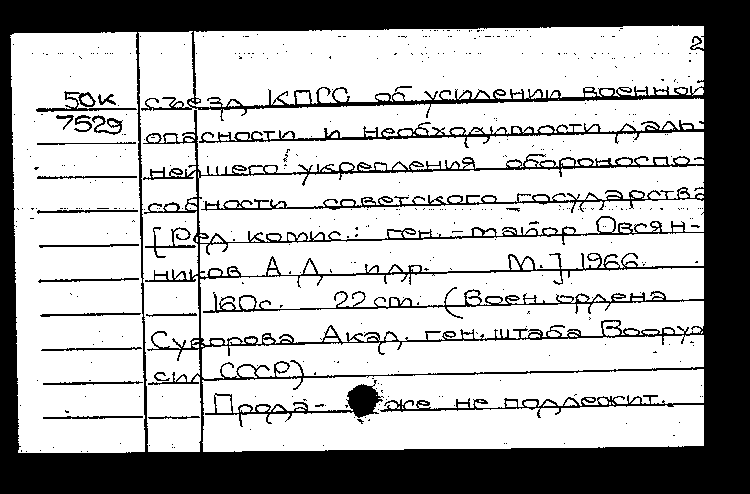 2
50к съезд КПСС об усилении военной
7529 опасности и необходимости даль-
нейшего укрепления обороноспо-
собности советского государства
[Ред. комис.: ген.-майор Овсян-
ников А.Д. и др. М.], 1966.
160с. 22 см. (Воен. ордена
Суворова Акад. ген. штаба Вооруж
сил СССР).
Прода- же не подлежит.